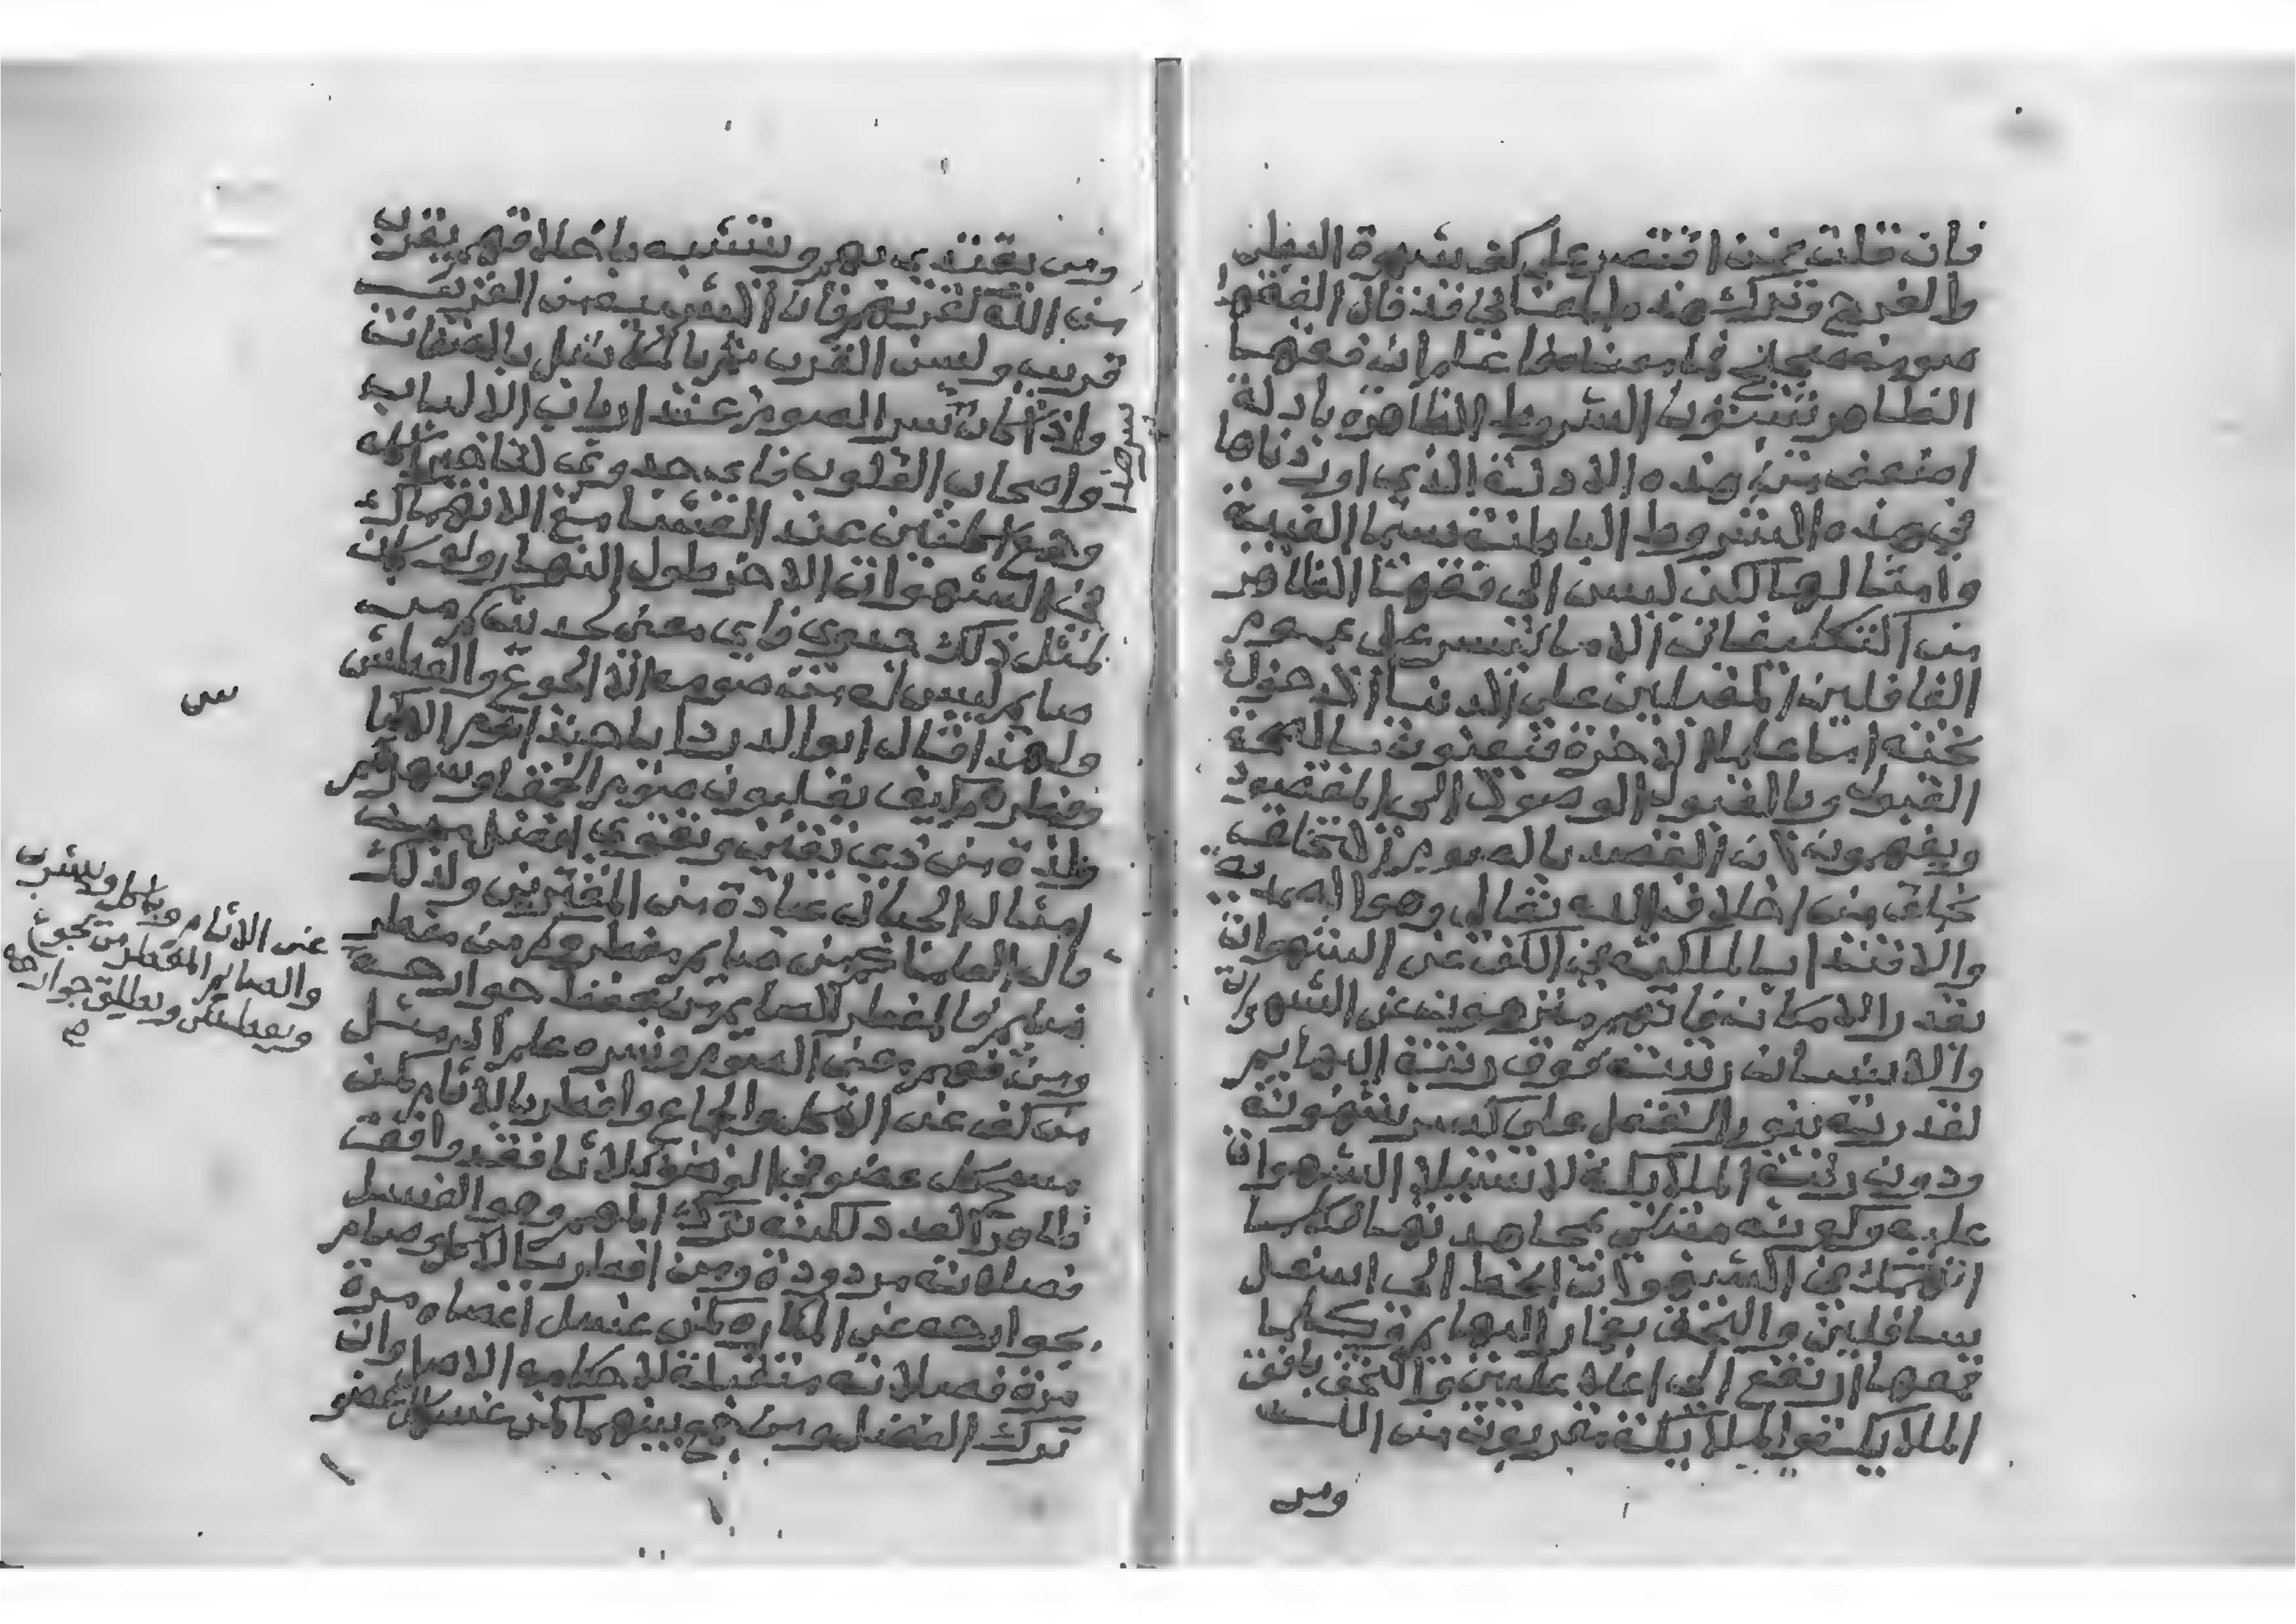 فان قلت فمن اقتصر على كف شهوة البطن
والفرج وترك هذه المعاني فقد قال الفقها
صومه صحيح فما معناه فاعلم ان فقها
الظاهر يثبتون الشروط الظاهرة بادلة
اضعف من هذه الادلة الذي اوردناها
في هذه الشروط الباطنة سيما الغيبة
وامثالها لكن ليس الى فقها الظاهر
من التكليفات الا ما يتيسر على عموم
الغافلين المقبلين على الدنيا الدخول
تحته اما علما الاخرة فيعنون بالصحة
القبول وبالقبول الوصول الى المقصود
ويفهمون ان القصد بالصوم التخلق
بخلق من اخلاق الله تعالى وهو الصمدية
والاقتدا بالملايكة في الكف عن الشهوات
بقدر الامكان فانهم منزهون عن الشهوات
والانسان رتبته فوق رتبة البهايم
لقدرته بنور العقل على كسر شهوته
ودون رتبة الملايكة لاستيلا الشهوات
عليه وكونه مبتلى بمجاهدتها فكلما
انهمك في الشهوات انحط الى اسفل
سافلين والتحق بغمار البهايم وكلما
قمعها ارتفع الى اعلا عليين والتحق بافق
الملايكة والملايكة مقربون من الله
ومن
ومن يقتدي بهم ويتشبه باخلاقهم يقرب
من الله كقربهم فان الشبيه من القريب
قريب وليس القرب ثم بالمكان بل بالصفات
واذا كان سر الصوم عند ارباب الالباب
واصحاب القلوب فاي جدوى لتاخير اكلة
وجمع اكلتين عند العشا مع الانهماك
في الشهوات الاخر طول النهار ولو كان
لمثل ذلك جدوى فاي معنى لحديث كم من
صايم ليس له من صومه الا الجوع والعطش
ولهذا قال ابو الدردا يا حبذا نوم الاكيا
وفطرهم كيف يغلبون صوم الحمقا وسهرهم
ولذة من ذي يقين وتقوى افضل من
امثال الجبال عبادة من المغترين ولذلك
قال العلما كم من صايم مفطر وكم من مفطر
صايم فالمفطر الصايم من يحفظ جوارحه
ومن فهم معنى الصوم وسره علم ان مثل
من كف عن الاكل والجماع وافطر بالاثام كمن
مسح كل عضو في الوضو ثلاثا فقد وافقت
ظاهر العدد لكنه ترك المهم وهو الغسل
فصلاته مردودة ومن افطر بالاكل وصام
بجوارحه عن المكاره كمن غسل اعضاه مرة
مرة فصلاته متقبلة لاحكامه الاصل وان
ترك الفضل ومن جمع بينهما كمن غسل كل عضو
عن الاثام وياكل ويشرب
والصايم المفطر من يجوع
ويعطش ويطلق جوارحه